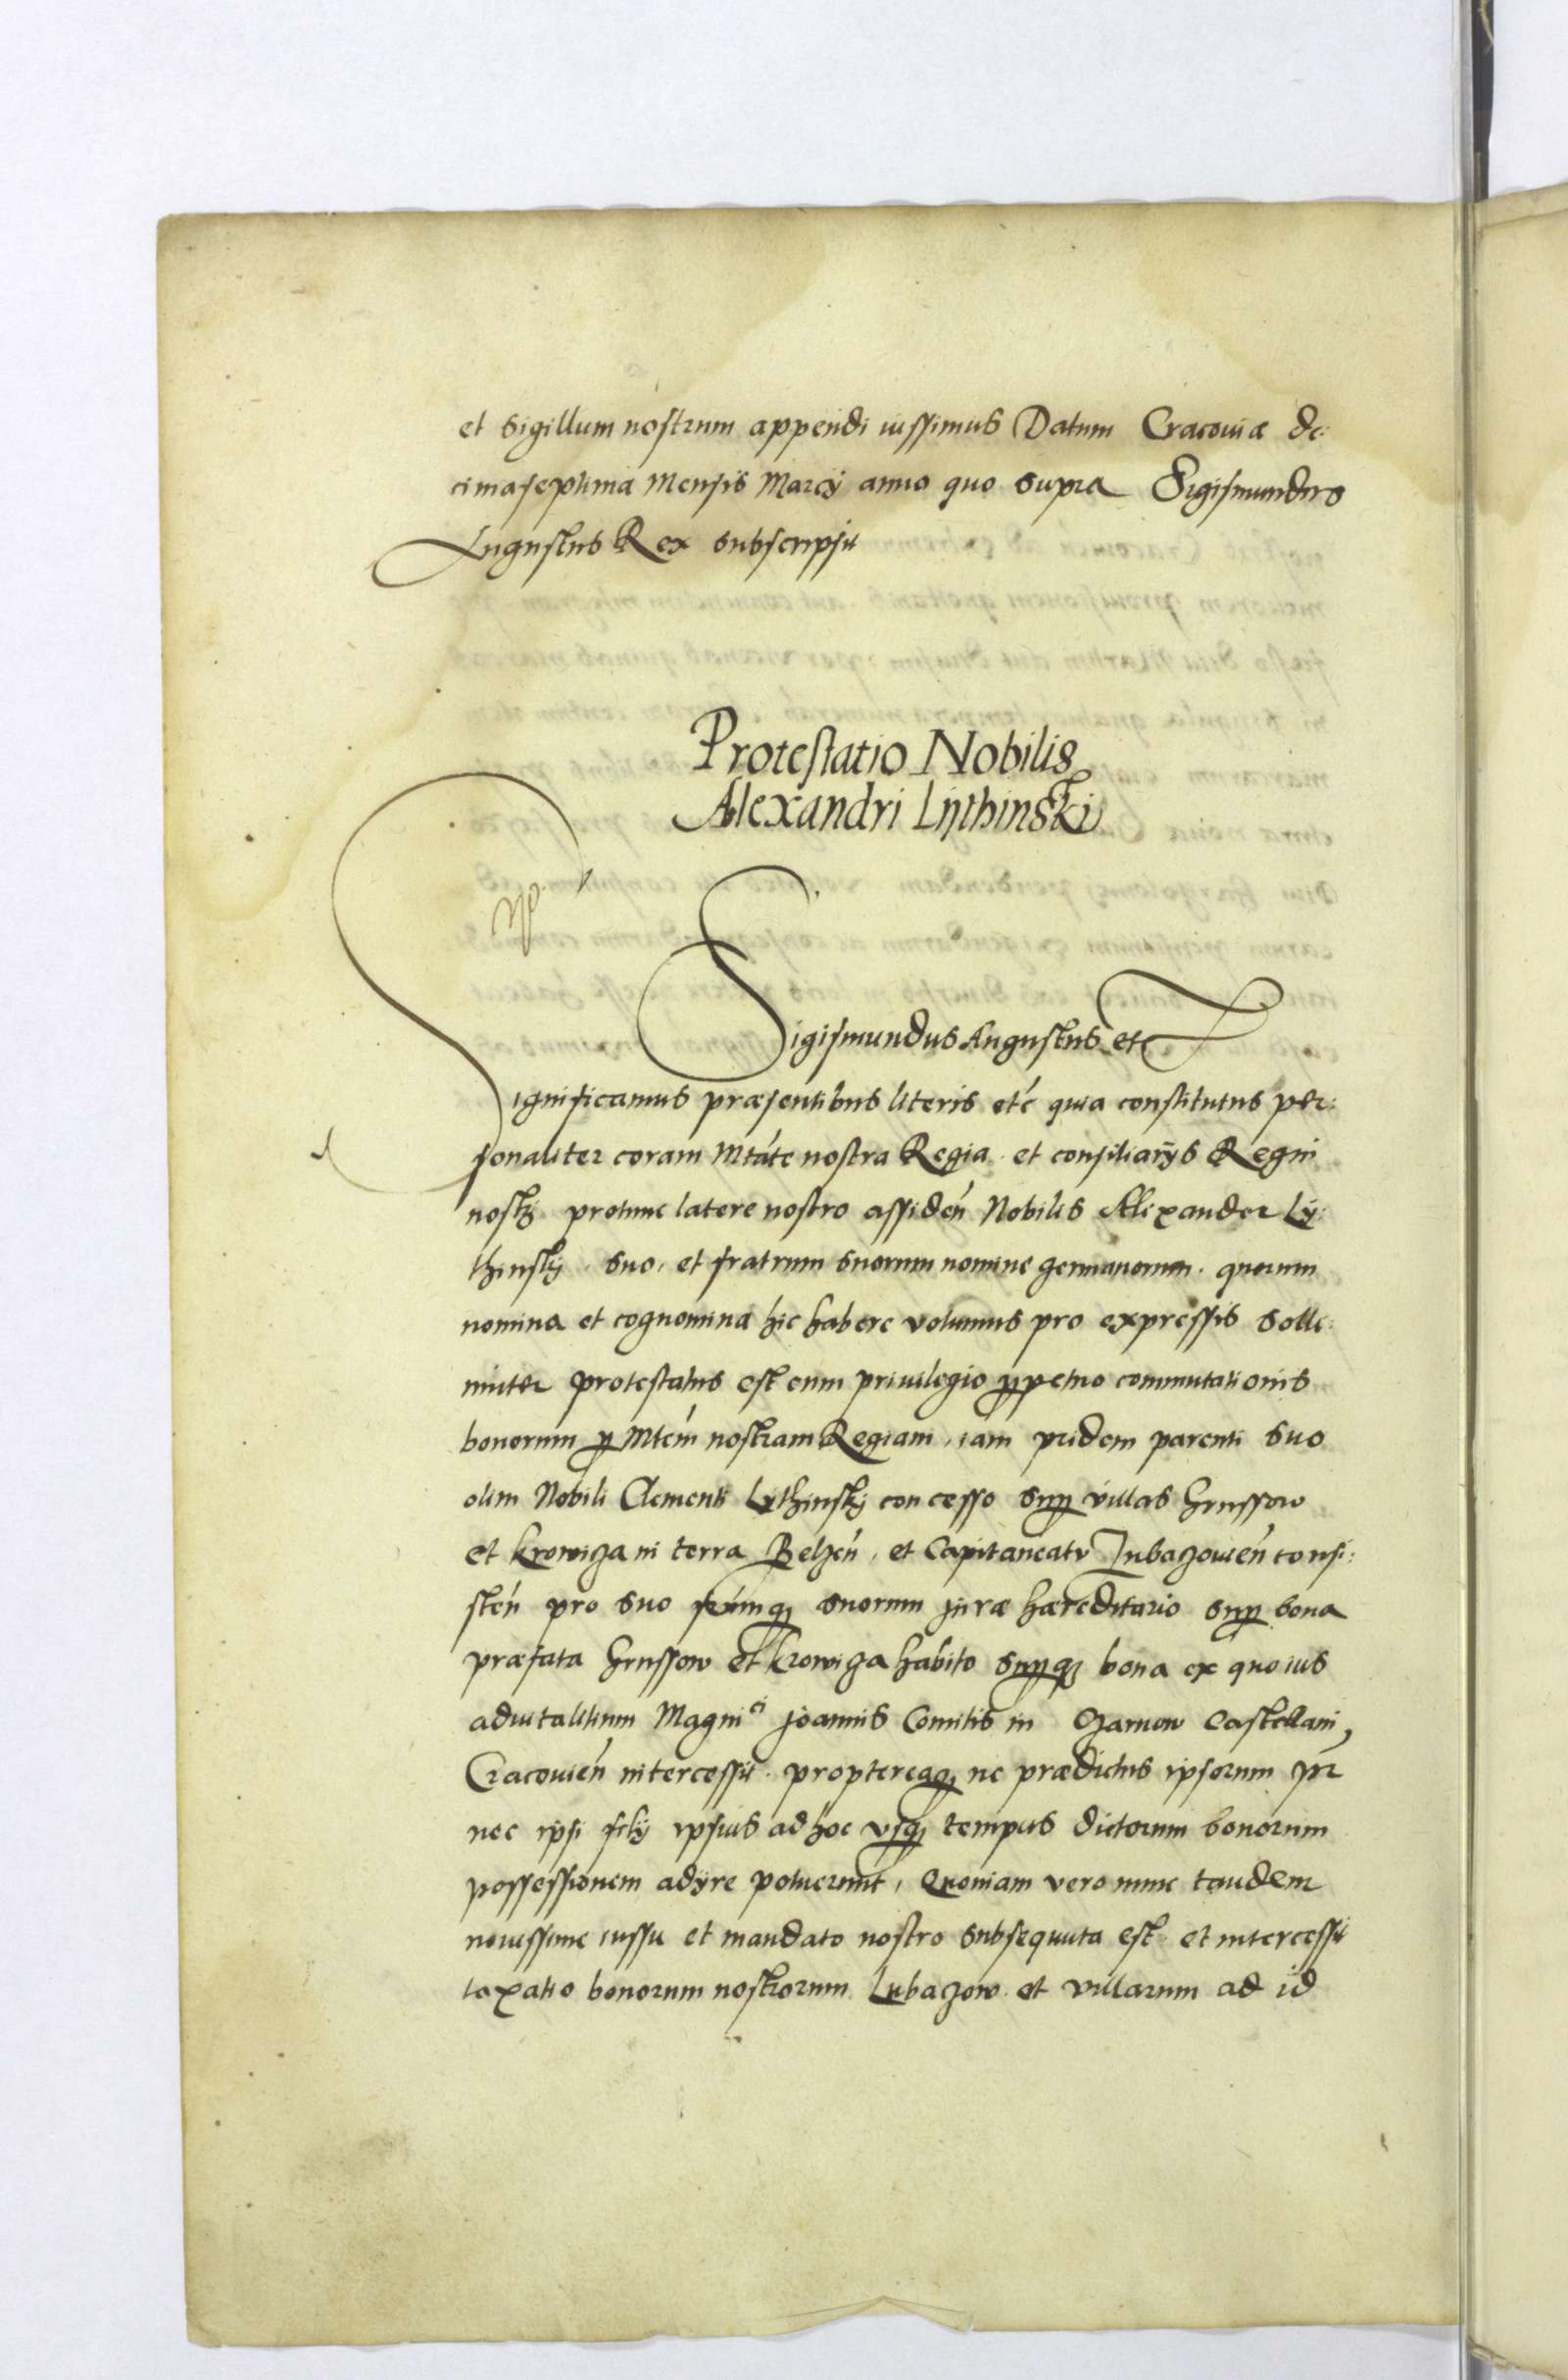 et sigillum nostrum appendi iussimus Datum Cracoviæ de:
cimaseptima Mensis Marcÿ anno quo supra Sigismundus
Augustus Rex subscripsit
Protestatio Nobilis
Alexandri Lÿthinskÿ
Sigismundus Augustus etc
Significamus præsentibus literis etć quia constitutus per:
sonaliter coram Mtáte nostra Regia et consiliarÿs Regni
nostrj protunc latere nostro assideń Nobilis Alexander Lÿ:
thinskj suo, et fratrum suorum nomine germanorum quorum
nomina et cognomina hic habere volumus pro expressis solle:
niter protestatus est cum privilegio ꝑpetuo commutationis
bonorum ꝑ Mtém nostram Regiam, iam pridem parenti suo
olim Nobili Clementi Lÿthinskj concesso suꝑ villas hrussow
et krowiza in terra Belzeń, et Capitaneatu Lubazovień consi:
steń pro suo frúmqꝫ suorum juræ hæreditario suꝑ bona
præfata hrussow et krowiza habito suꝑqꝫ bona ex quo ius
advitalitium Magnici Joannis Comitis in Czarnow Castellani
Cracovień intercessit propterea qꝫ ne prædictus ipsorum pr̃
nec ipsi filÿ ipsius ad hoc vsqꝫ tempus dictorum bonorum
possessionem adÿre potuerunt, Quoniam vero nunc tandem
novissime iussu et mandato nostro subsequuta est et intercessit
taxatio bonorum nostrorum Lubazow et villarum ad id